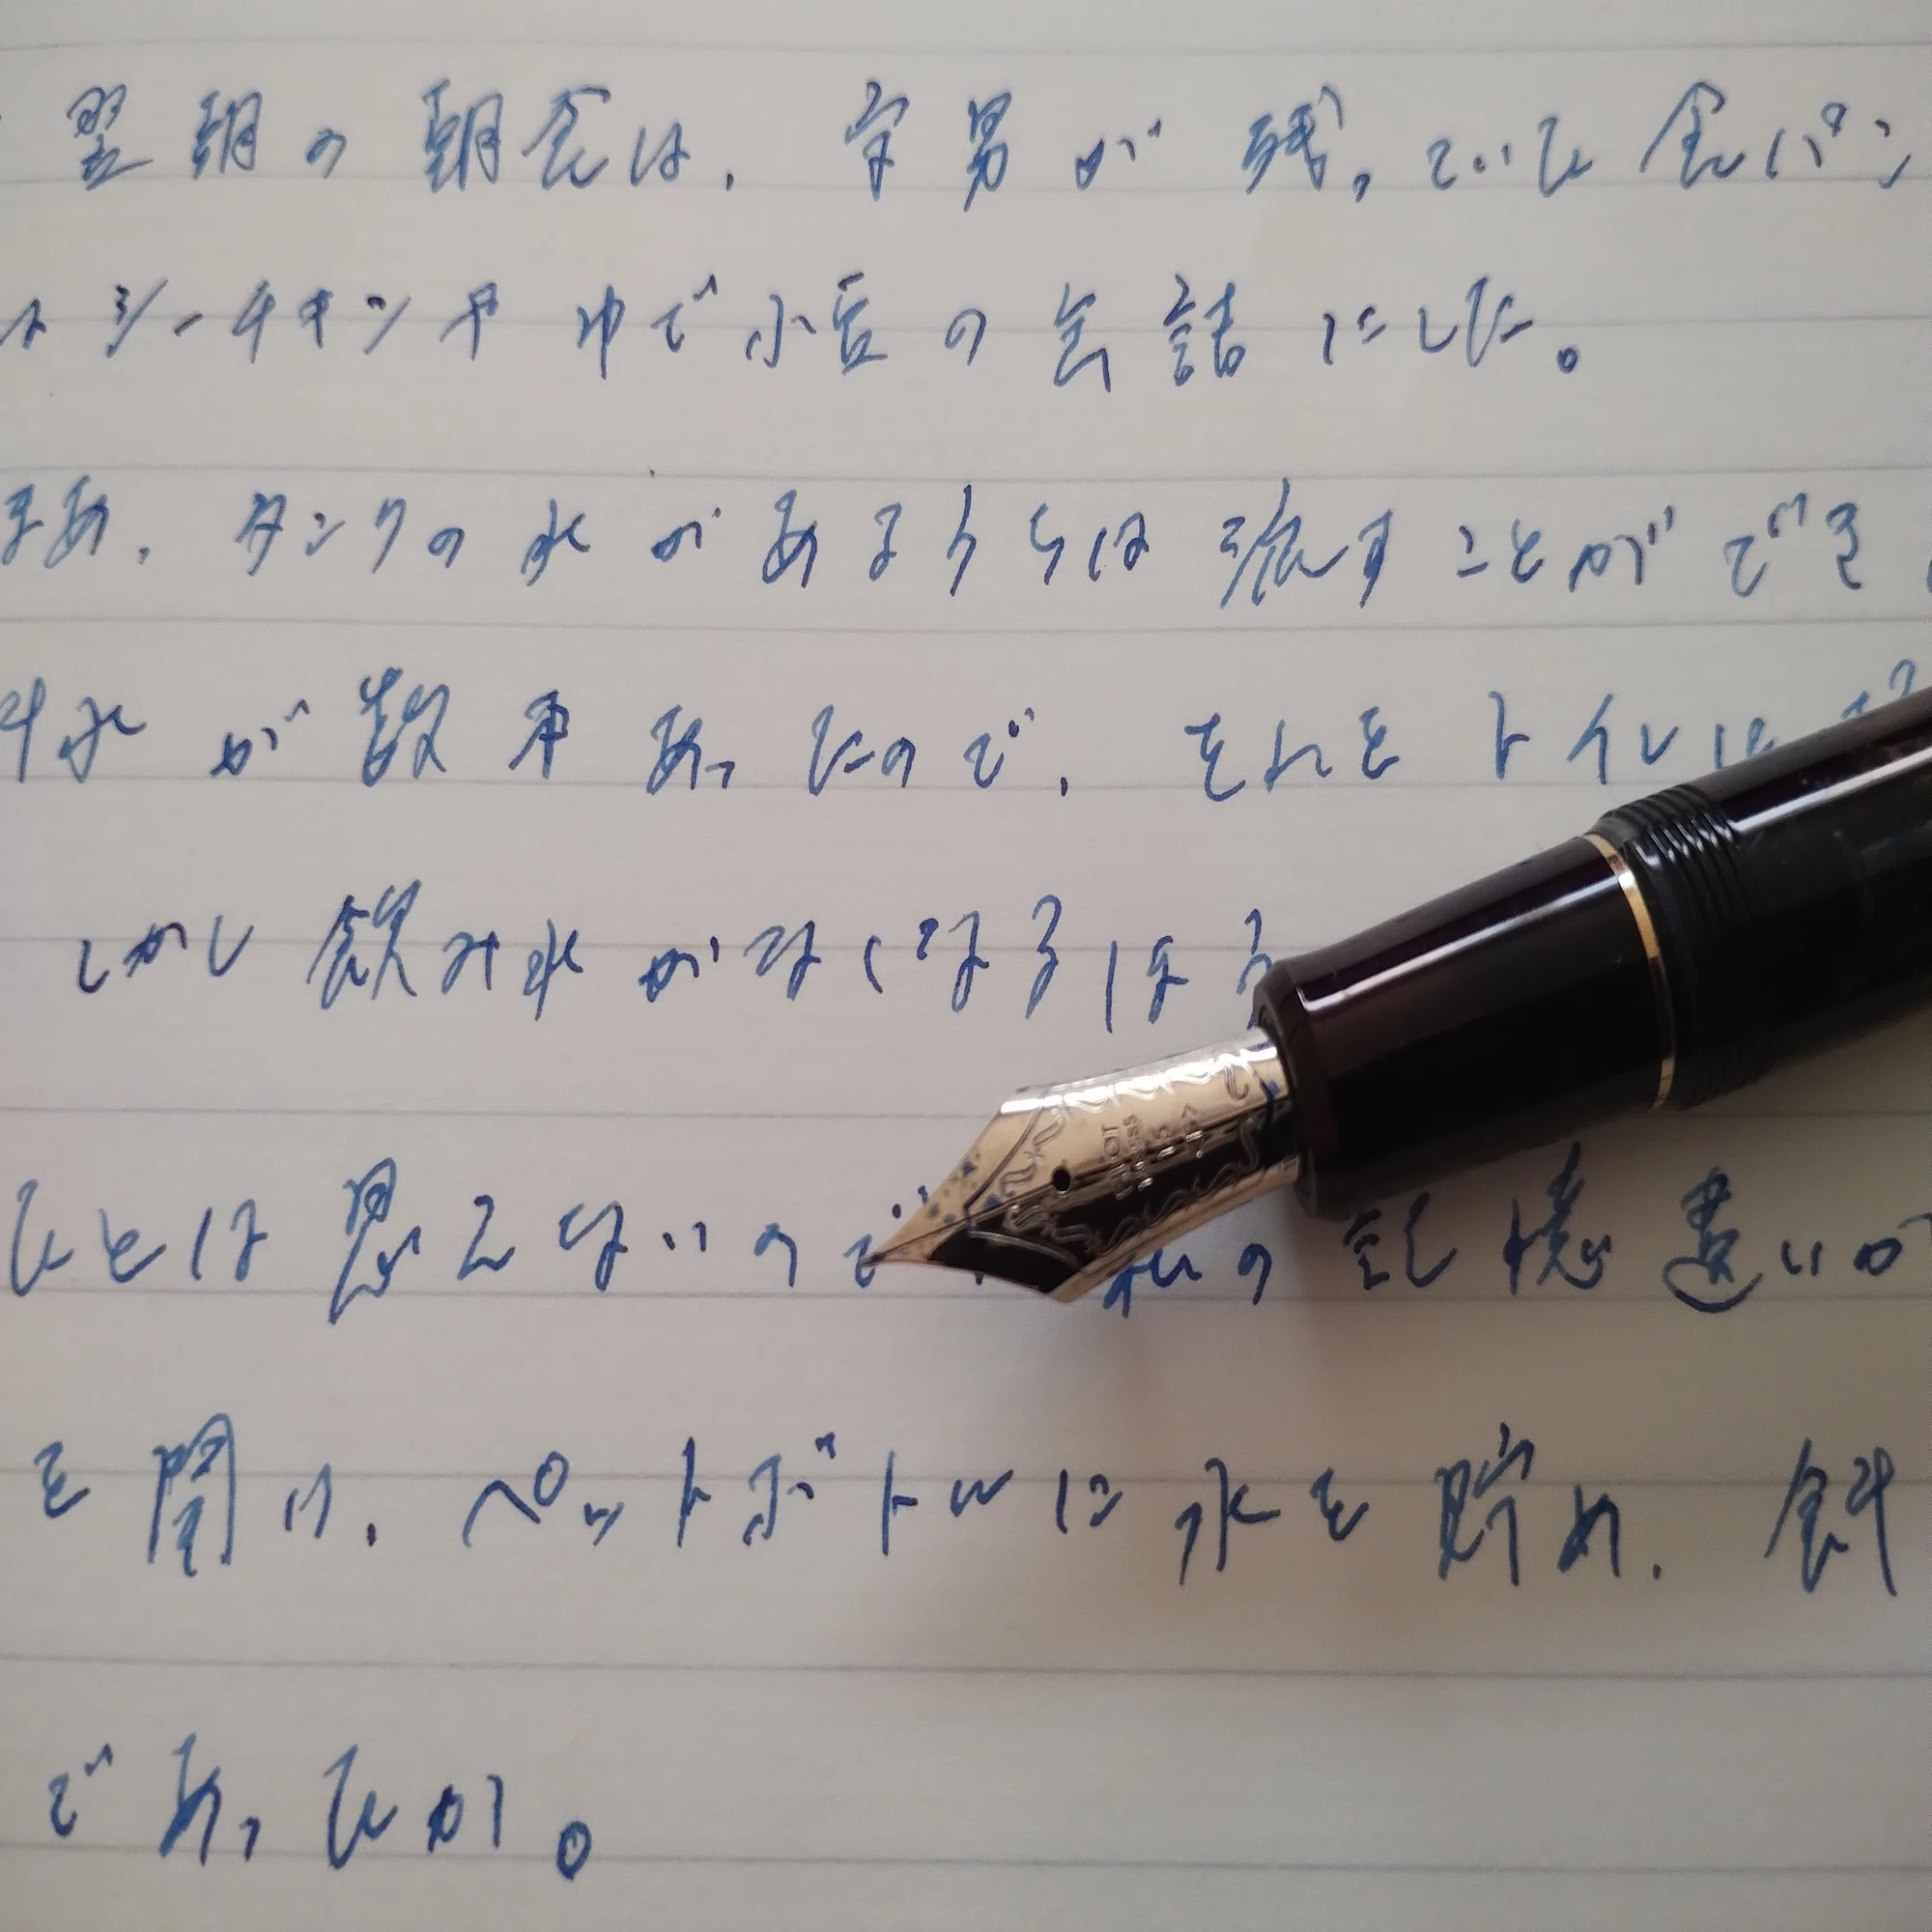 翌朝の朝食は、宇男が残っていた食パン
トシーチキンやゆで小豆の缶詰にした。
まあ、タンクの水があるうちは流すことができ
料水が数本あったので、それをトイレに
しかし飲み水がなくなるほ
たとは思えないので 私の記憶違いか
を開け、ペットボトルに水を貯め、飲料
であったか。